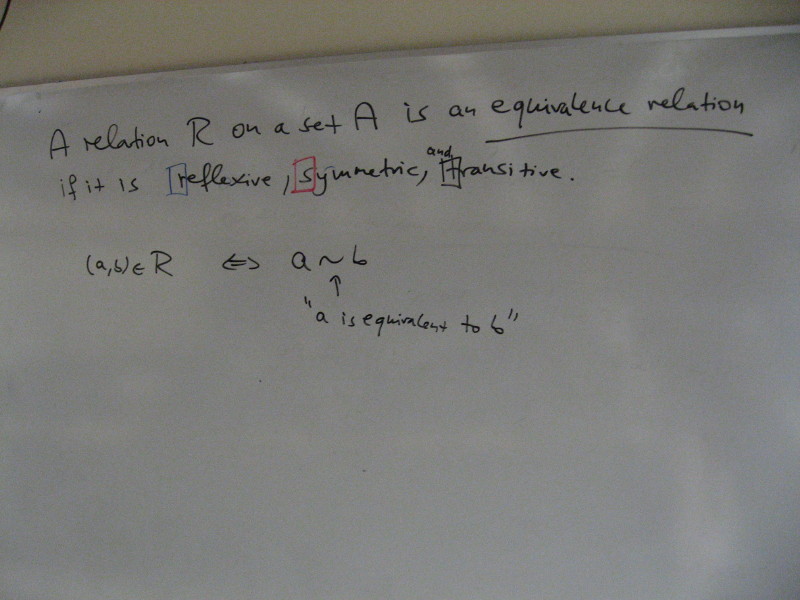 A relation R on a set A is an equivalence relation
if it is reflexive, symmetric, and transitive.
(a,b) ∈ R ⇔ a ~ b
↑
"a is equivalent to b"